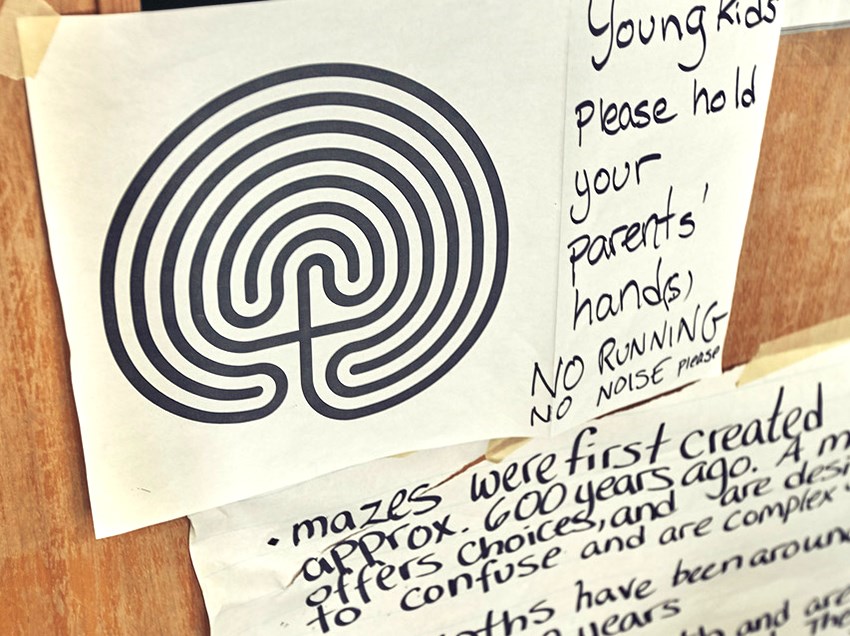 Young kids
Please hold
your
parents'
hand(s)
NO RUNNING
NO NOISE please
• mazes were first created
approx. 600 years ago. A
offers choices, and are
to confuse and are complex
have been around
years
and are
The